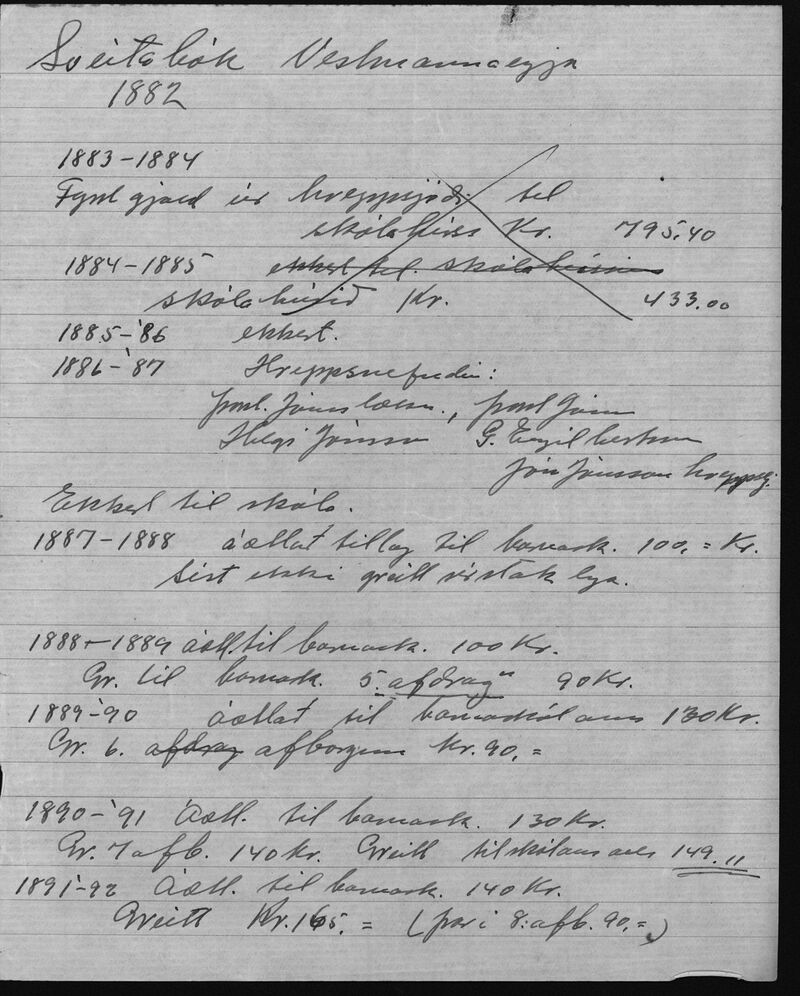 Sveitabók Vestmannaeyja
1882
1883-1884
Fyrst gjald úr hreppsjóði til
skólahúss Kr. 795.40
1884-1885 ekkert til skólahússins
skólahúsið Kr. 433.00
1885-'86 ekkert.
1886-'87 Hreppsnefndin:
Þorst. Jónss læknir, Þorst Jónss
Helgi Jónsson G. Engilbertsson
Jón Jónsson hreppstj.
Ekkert til skóla.
1887-1888 áætlað tillag til barnask. 100,= Kr.
Sést ekki greitt
1888-1889 áætl. til barnask. 100 Kr.
Gr. til barnask. 5. afdrag" 90 Kr.
1889-'90 áætlað til barnaskólans 130 Kr.
Gr. 6. afdrag afborgun Kr. 90,=
1890-'91 Áætl. til barnask. 130 Kr.
Gr. 7 afb. 140 Kr. Greitt til skólans 149.11
1891-92 Áætl. til barnask. 140 Kr.
Greitt Kr. 165.= (þar í 8. afb. 90,=)